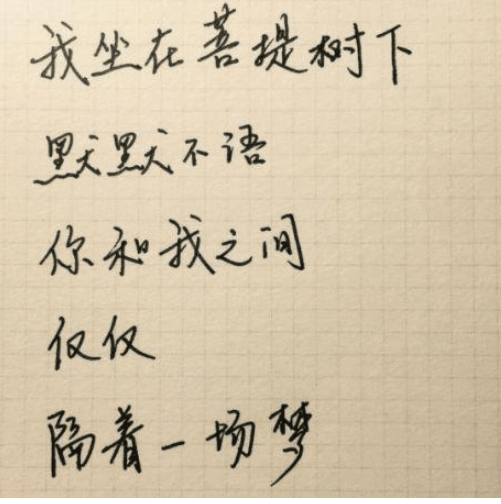 我坐在菩提树下
默默不语
你和我之间
仅仅
隔着一场梦